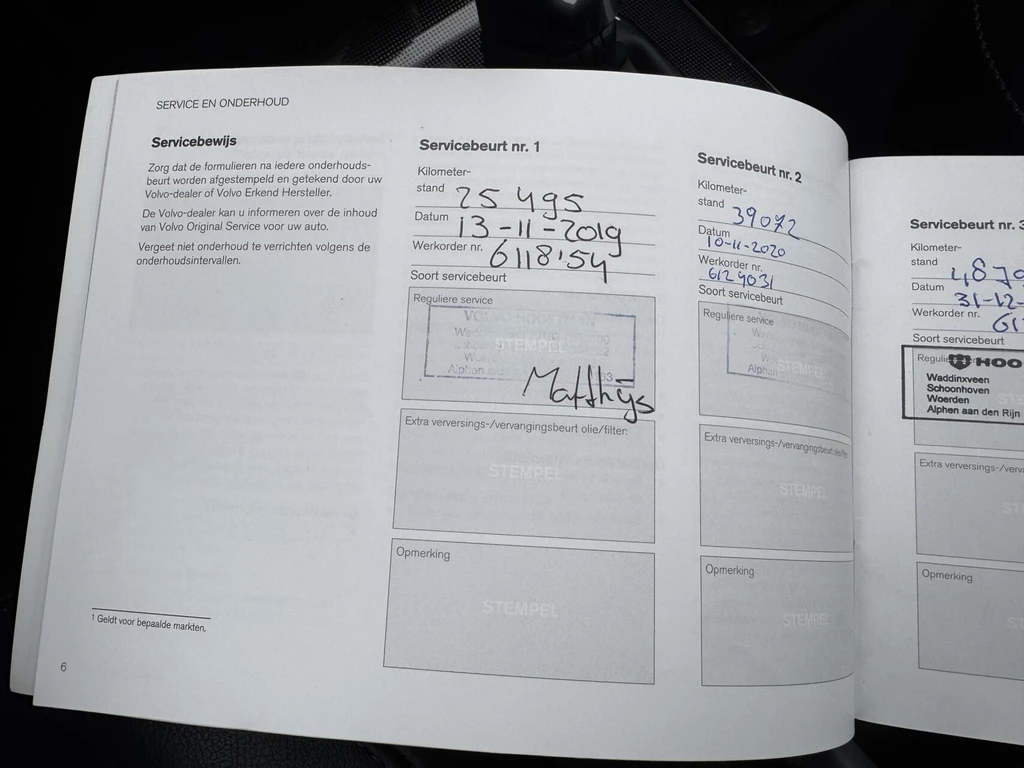 SERVICE EN ONDERHOUD
Servicebewijs
Zorg dat de formulieren na iedere onderhouds-
beurt worden afgestempeld en getekend door uw
Volvo-dealer of Volvo Erkend Hersteller.
De Volvo-dealer kan u informeren over de inhoud
van Volvo Original Service voor uw auto.
Vergeet niet onderhoud te verrichten volgens de
onderhoudsintervallen.
1 Geldt voor bepaalde markten.
6
Servicebeurt nr. 1
Kilometer-
stand 25495
Datum 13-11-2019
Werkorder nr. 6118154
Soort servicebeurt
Reguliere service
STEMPEL
Matthijs
Extra verversings-/vervangingsbeurt olie/filter:
STEMPEL
Opmerking
STEMPEL
Servicebeurt nr. 2
Kilometer-
stand 39072
Datum
10-11-2020
Werkorder nr.
6129031
Soort servicebeurt
Reguliere service
STEMPEL
Extra verversings-/vervangingsbeurt olie/filter
STEMPEL
Opmerking
STEMPEL
Servicebeurt nr. 3
Kilometer-
stand 4879
Datum 31-12-
Werkorder nr. 61
Soort servicebeurt
HOO
Waddinxveen
Schoonhoven
Woerden
Alphen aan den Rijn
Extra verversings-/verva
ST
Opmerking
ST